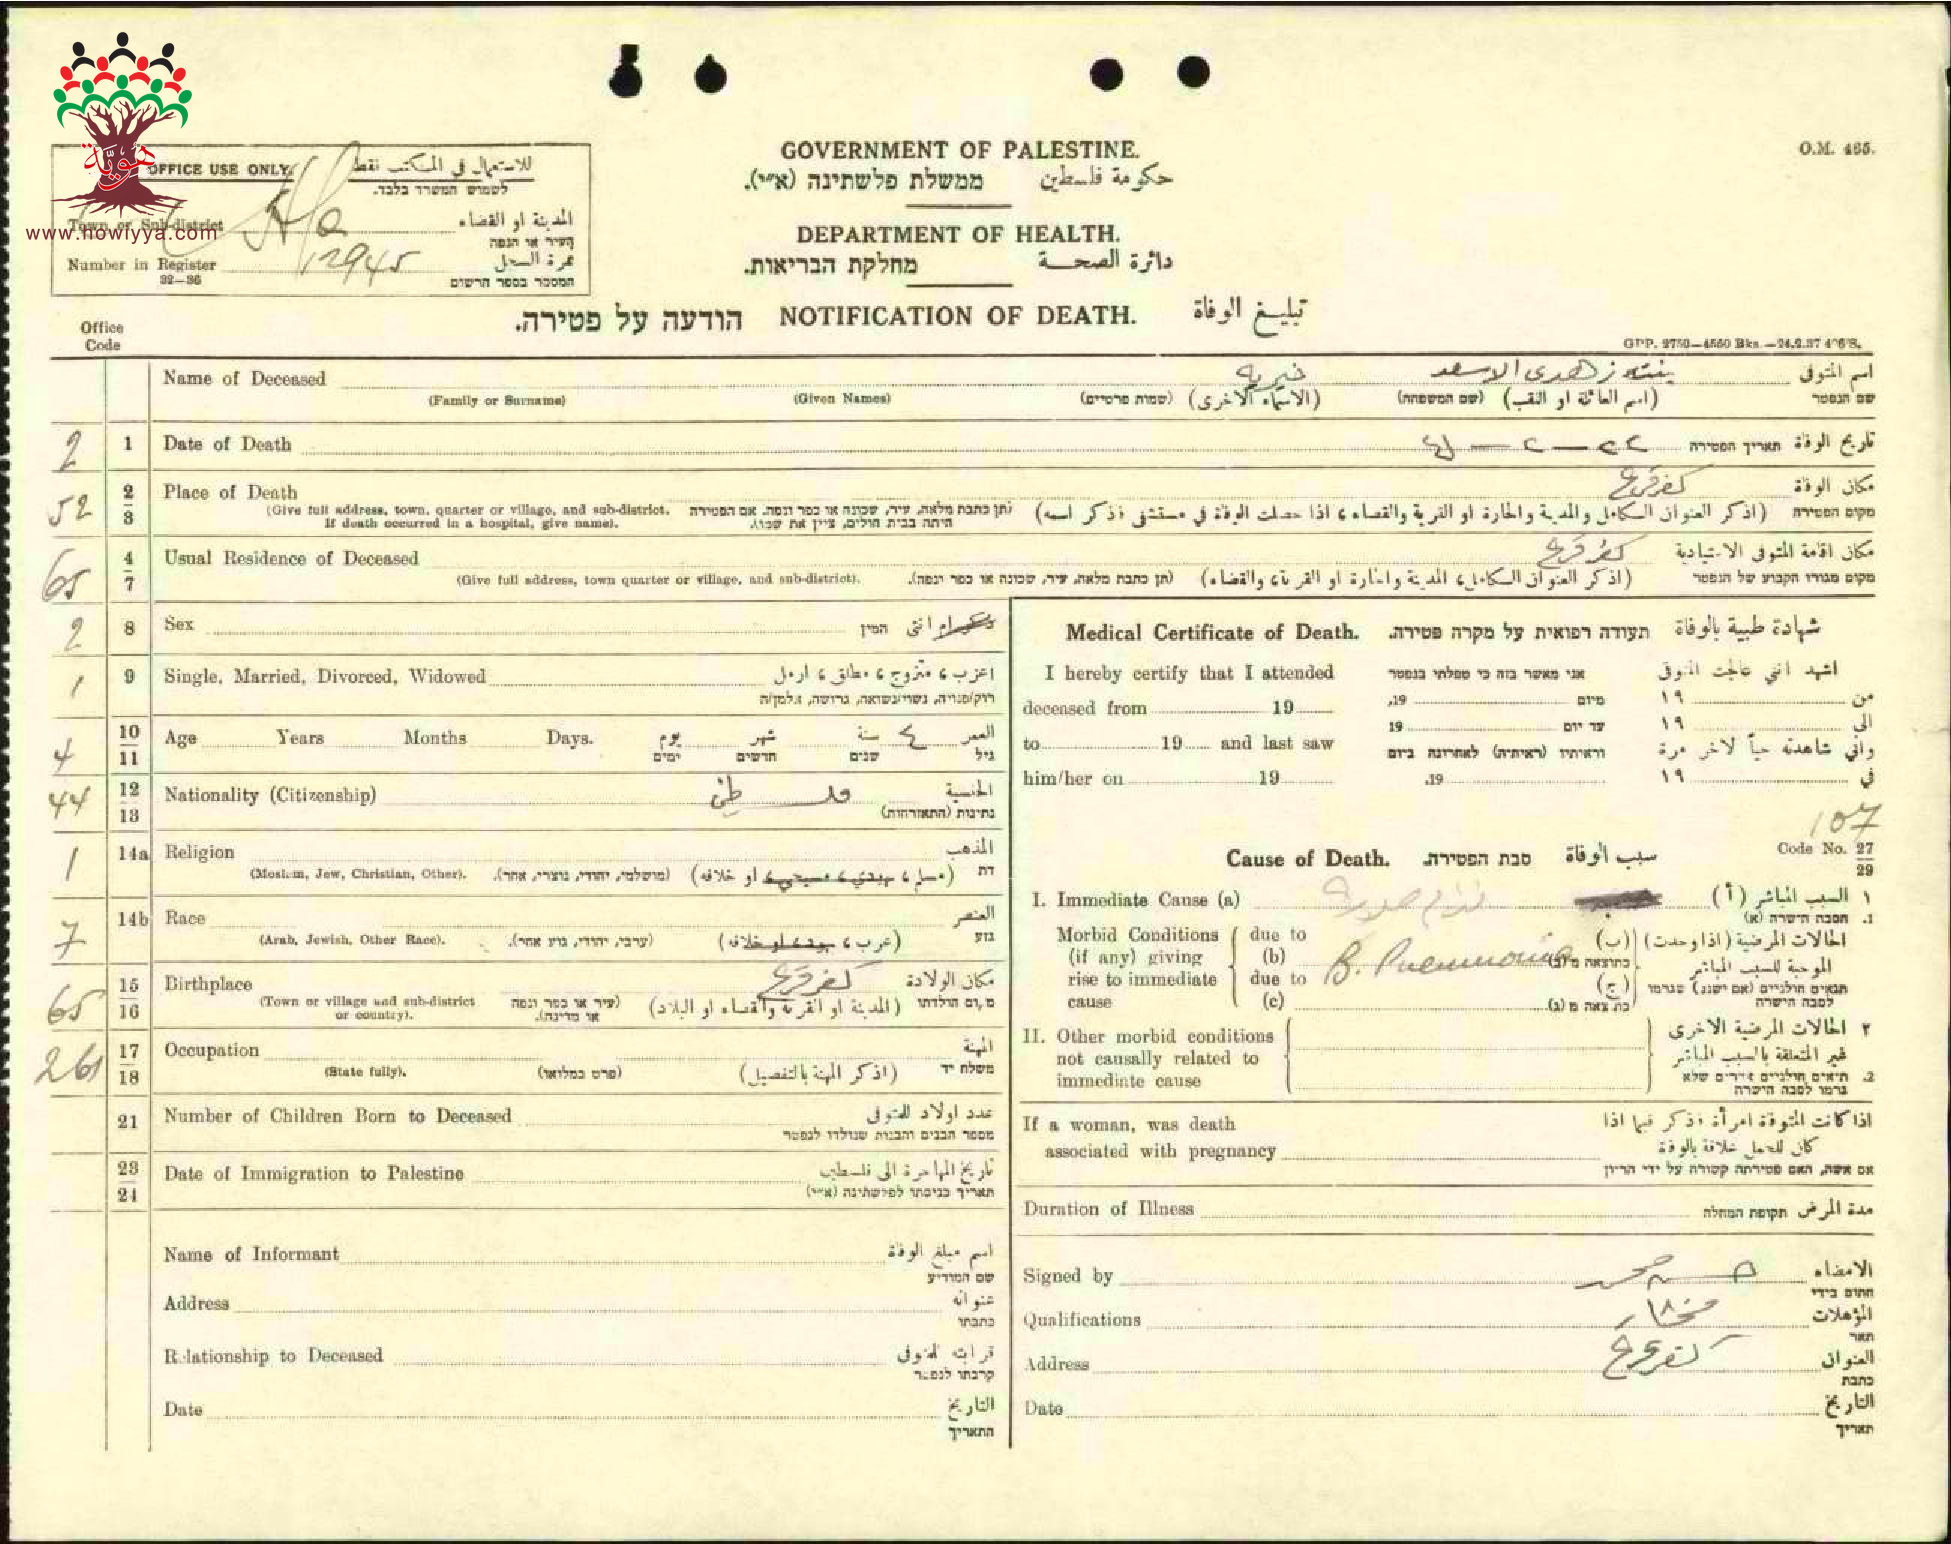 هويّة
www.howiyya.com
O.M. 465.
OFFICE USE ONLY. للاستعمال في المكتب فقط
לשמוש המשרד בלבד.
Town or Sub-district Ha المدينة او القضاء
העיר או הנפה
Number in Register 12945 نمرة السجل
32—36 המספר בספר הרשום
GOVERNMENT OF PALESTINE.
ממשלת פלשתינה (א״י). حكومة فلسطين
DEPARTMENT OF HEALTH.
מחלקת הבריאות. دائرة الصحة
הודעה על פטירה. NOTIFICATION OF DEATH. تبليغ الوفاة
Office
Code
GPP. 2750—4560 Bks.—24.2.37 4"6'S.
Name of Deceased خيرية بنت زهدى الاسعد اسم المتوفى
(Family or Surname) (Given Names) (שמות פרטיים) (الاسماء الاخرى) (שם המשפחה) (اسم العائلة او اللقب) שם הנפטר
2 1 Date of Death تاريخ الوفاة תאריך הפטירה
52 2 3 Place of Death كفرقرع مكان الوفاة
(Give full address, town, quarter or village, and sub-district. If death occurred in a hospital, give name). (תן כתבת מלאה, עיר, שכונה או כפר ונפה. אם הפטירה היתה בבית חולים, ציין את שמו). (اذكر العنوان الكامل والمدينة والحارة او القرية والقضاء، اذا حصلت الوفاة في مستشفى فذكر اسمه) מקום הפטירה
65 4 7 Usual Residence of Deceased كفرقرع مكان اقامة المتوفى الاعتيادية
(Give full address, town quarter or village, and sub-district). (תן כתבת מלאה, עיר, שכונה או כפר ונפה). (اذكر العنوان الكامل، المدينة والحارة او القرية، والقضاء) מקום מגוריו הקבוע של הנפטר
2 8 Sex המין ذكر او انثى
1 9 Single, Married, Divorced, Widowed اعزب، متزوج، مطلق، ارمل
רוק/פנויה, נשוי/נשואה, גרושה, אלמן/ה
4 10 11 Age Years Months Days. يوم شهر سنة ٤ العمر
ימים חדשים שנים גיל
44 12 13 Nationality (Citizenship) فلسطيني الجنسية
נתינות (התאזרחות)
1 14a Religion المذهب
(Moslem, Jew, Christian, Other). (מושלמי, יהודי, נוצרי, אחר). (مسلم، يهودي، مسيحي، او خلافه) דת
7 14b Race العنصر
(Arab, Jewish, Other Race). (ערבי, יהודי, גזע אחר). (عرب، يهود، او خلافه) גזע
65 15 16 Birthplace كفرقرع مكان الولادة
(Town or village and sub-district or country). (עיר או כפר ונפה או מדינה). (المدينة او القرية والقضاء او البلاد) מקום הולדתו
261 17 18 Occupation المهنة
(State fully). (פרט במלואו) (اذكر المهنة بالتفصيل) משלח יד
21 Number of Children Born to Deceased عدد اولاد المتوفى
מספר הבנים והבנות שנולדו לנפטר
23 24 Date of Immigration to Palestine تاريخ المهاجرة الى فلسطين
תאריך כניסתו לפלשתינה (א״י)
Name of Informant اسم مبلغ الوفاة
שם המודיע
Address عنوانه
כתבתו
Relationship to Deceased قرابته للمتوفى
קרבתו לנפטר
Date التاريخ
התאריך
Medical Certificate of Death. תעודה רפואית על מקרה פטירה. شهادة طبية بالوفاة
I hereby certify that I attended אני מאשר בזה כי טפלתי בנפטר اشهد انني عالجت المتوفى
deceased from 19 19, מיום ١٩ من
to 19 and last saw 19 עד יום ١٩ الى
וראיתיו (ראיתיה) לאחרונה ביום واني شاهدته حياً لاخر مرة
him/her on 19 19. ١٩ في
107
Code No. 27 29
Cause of Death. סבת הפטירה. سبب الوفاة
I. Immediate Cause (a) ١ السبب المباشر (أ)
1. הסבה הישרה (א)
Morbid Conditions (if any) giving rise to immediate cause due to (b) due to (c) B. Pneumonia (ب) (ج) الحالات المرضية (اذا وجدت) الموجبة للسبب المباشر
כתוצאה מ(ב) תנאים חולניים (אם ישנם) שגרמו לסבה הישרה
כתוצאה מ(ג)
II. Other morbid conditions not causally related to immediate cause ٢ الحالات المرضية الاخرى غير المتعلقة بالسبب المباشر
2. תנאים חולניים אחרים שלא גרמו לסבה הישרה
If a woman, was death associated with pregnancy اذا كانت المتوفة امرأة فذكر فيما اذا كان للحمل علاقة بالوفاة
אם אשה, האם פטירתה קשורה על ידי הריון
Duration of Illness תקופת המחלה مدة المرض
Signed by حسن محمد الامضاء
חתום בידי
Qualifications مختار المؤهلات
תאר
Address كفرقرع العنوان
כתבת
Date التاريخ
תאריך